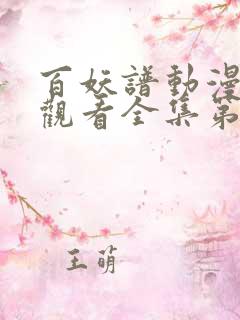 百妖譜動漫
觀看全集第
王萌